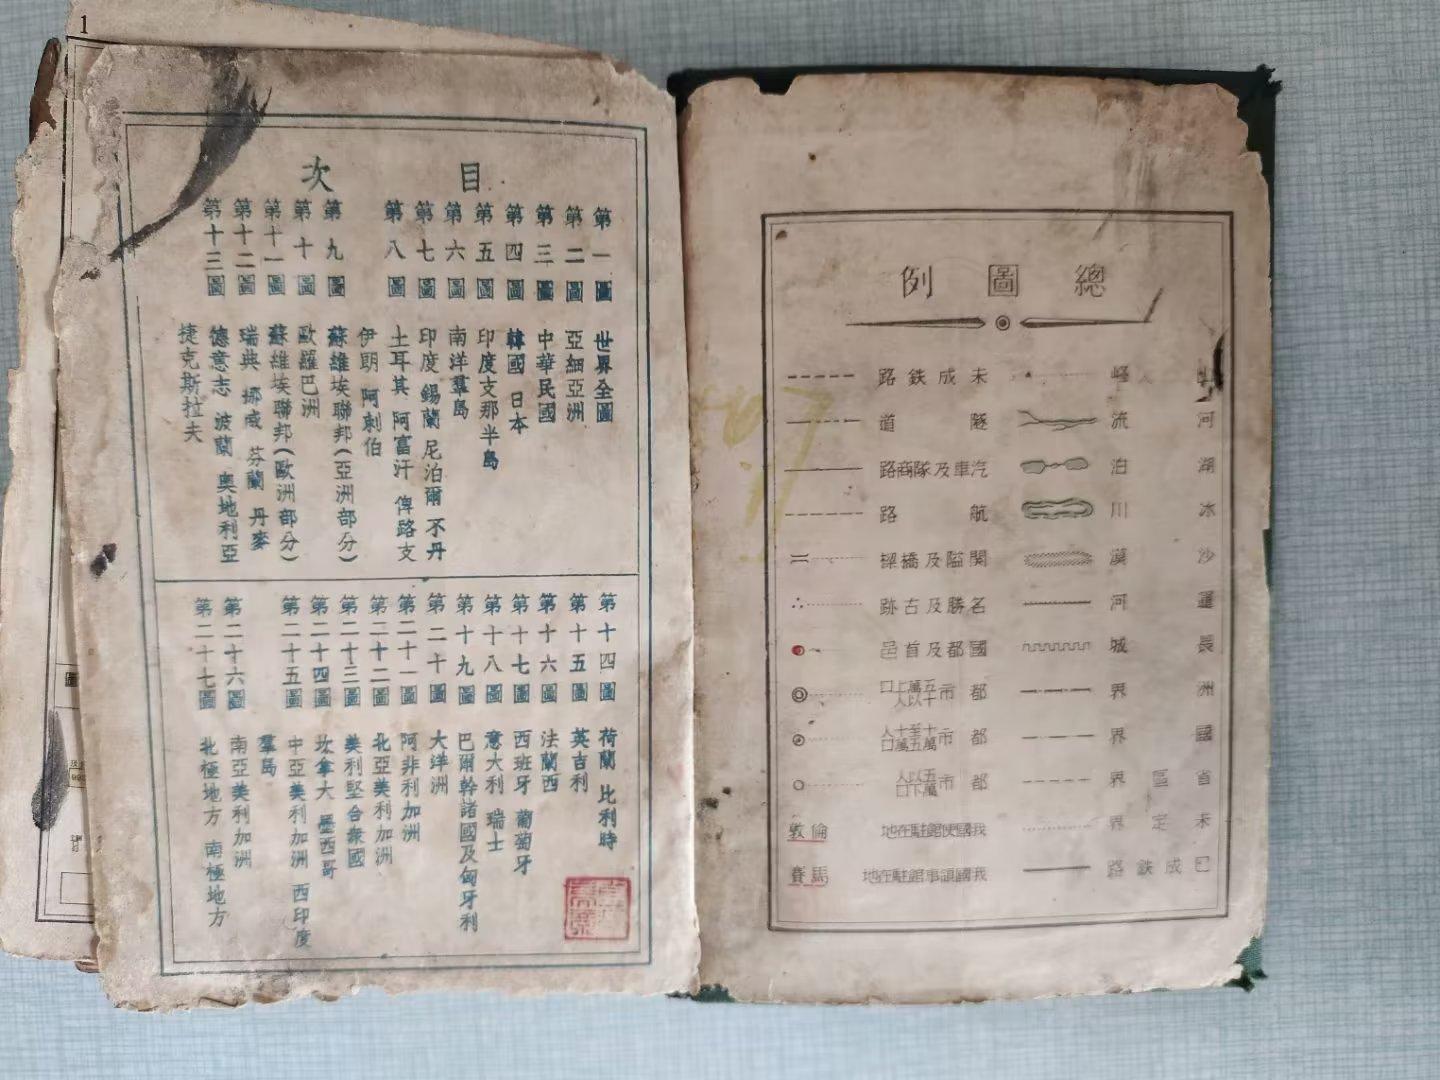 總圖例
山 峰
河流
湖泊
冰川
沙漠
運河
長城
洲界
國界
省區界
未定界
已成鉄路
未成鉄路
隧道
汽車及隊商路
航路
關隘及橋樑
名勝及古跡
國都及首邑
都市五十萬以上人口
都市十萬至五十萬人口
都市五萬以下人口
我國使館駐在地
倫敦
我國領事館駐在地
馬賽
目次
第一圖 世界全圖
第二圖 亞細亞洲
第三圖 中華民國
第四圖 韓國 日本
第五圖 印度支那半島
第六圖 南洋羣島
第七圖 印度 錫蘭 尼泊爾 不丹
第八圖 土耳其 阿富汗 俾路支
伊朗 阿剌伯
第九圖 蘇維埃聯邦(亞洲部分)
第十圖 歐羅巴洲
第十一圖 蘇維埃聯邦(歐洲部分)
第十二圖 瑞典 挪威 芬蘭 丹麥
第十三圖 德意志 波蘭 奧地利亞
捷克斯拉夫
第十四圖 荷蘭 比利時
第十五圖 英吉利
第十六圖 法蘭西
第十七圖 西班牙 葡萄牙
第十八圖 意大利 瑞士
第十九圖 巴爾幹諸國及匈牙利
第二十圖 大洋洲
第二十一圖 阿非利加洲
第二十二圖 北亞美利加洲
第二十三圖 美利堅合衆國
第二十四圖 坎拿大 墨西哥
第二十五圖 中亞美利加洲 西印度
羣島
第二十六圖 南亞美利加洲
第二十七圖 北極地方 南極地方
1